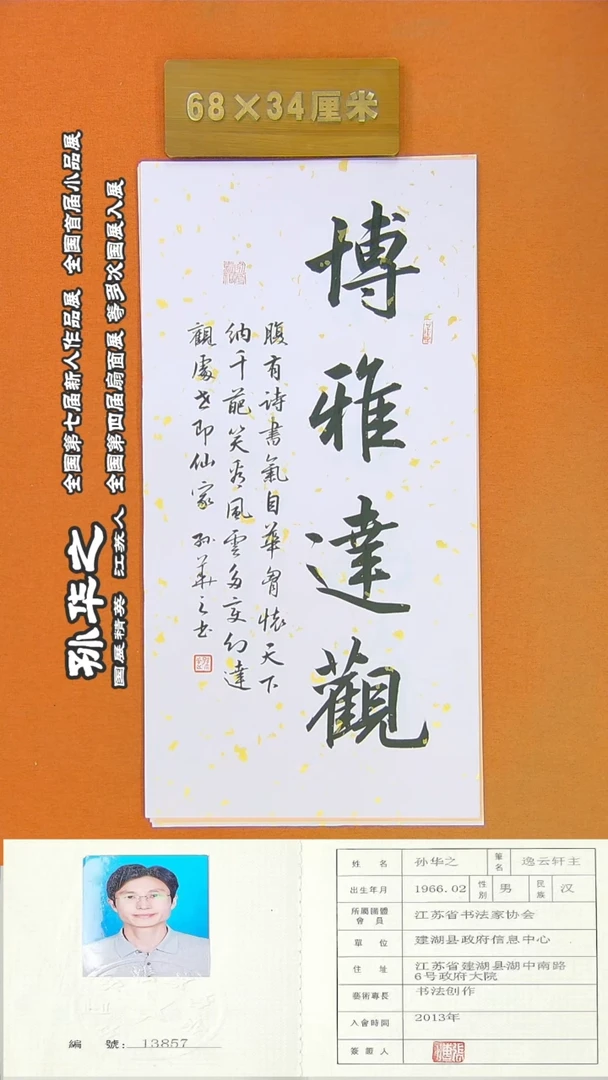 68×34厘米
孙华之 全国第七届新人作品展 全国首届小品展
国展精英 江苏人 全国第四届扇面展 等多次国展入展
博雅達觀
腹有詩書氣自華胷懷天下
納千葩笑看風雲多变幻達
觀處世即仙家 孙華之书
姓 名 孙华之 筆名 逸云轩主
出生年月 1966.02 性别 男 民族 汉
所屬團體會員 江苏省书法家协会
單 位 建湖县政府信息中心
住 址 江苏省建湖县湖中南路
6号政府大院
藝術專長 书法创作
入會時間 2013年
簽署人
編 號: 13857